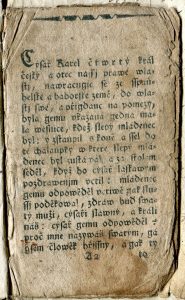 Cysař Karel čtwrtý král
český a otec naší prawé wla-
sti, nawracugie se ze
a baborské země, do wla-
sti swé, a očigdaw na pomezý,
byla gemu ukázana gedna ma-
la wesnice, kdež slepý mládenec
byl; y zstaupil s koně a šel do
té chalaupky w které slepý mlá-
denec byl a za stolem
seděl, kdež ho cysař láskawým
pozdrawenjm vctil: mládenec
gemu odpowěděl vctiwě gak slu-
ssj poděkowal, zdráw bud swa-
tý muži, cysaři slawný, a králi
náš: cysař gemu odpowěděl
proč mne nazýwáš swatým, gá
gsem člowěk hřjssný, a gak ty
A2 to